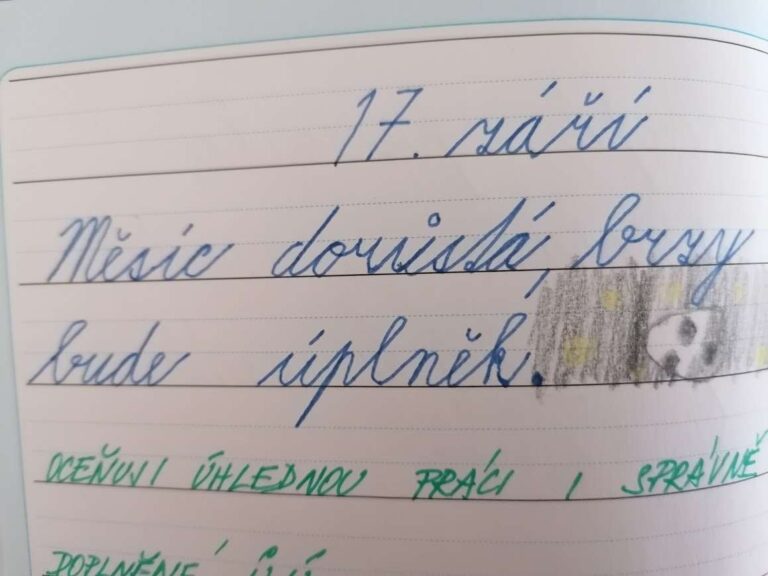 17. září
Měsíc dorůstá, brzy
bude úplněk.
OCEŇUJI ÚHLEDNOU PRÁCI I SPRÁVNĚ
DOPLNĚNÉ ů, ú